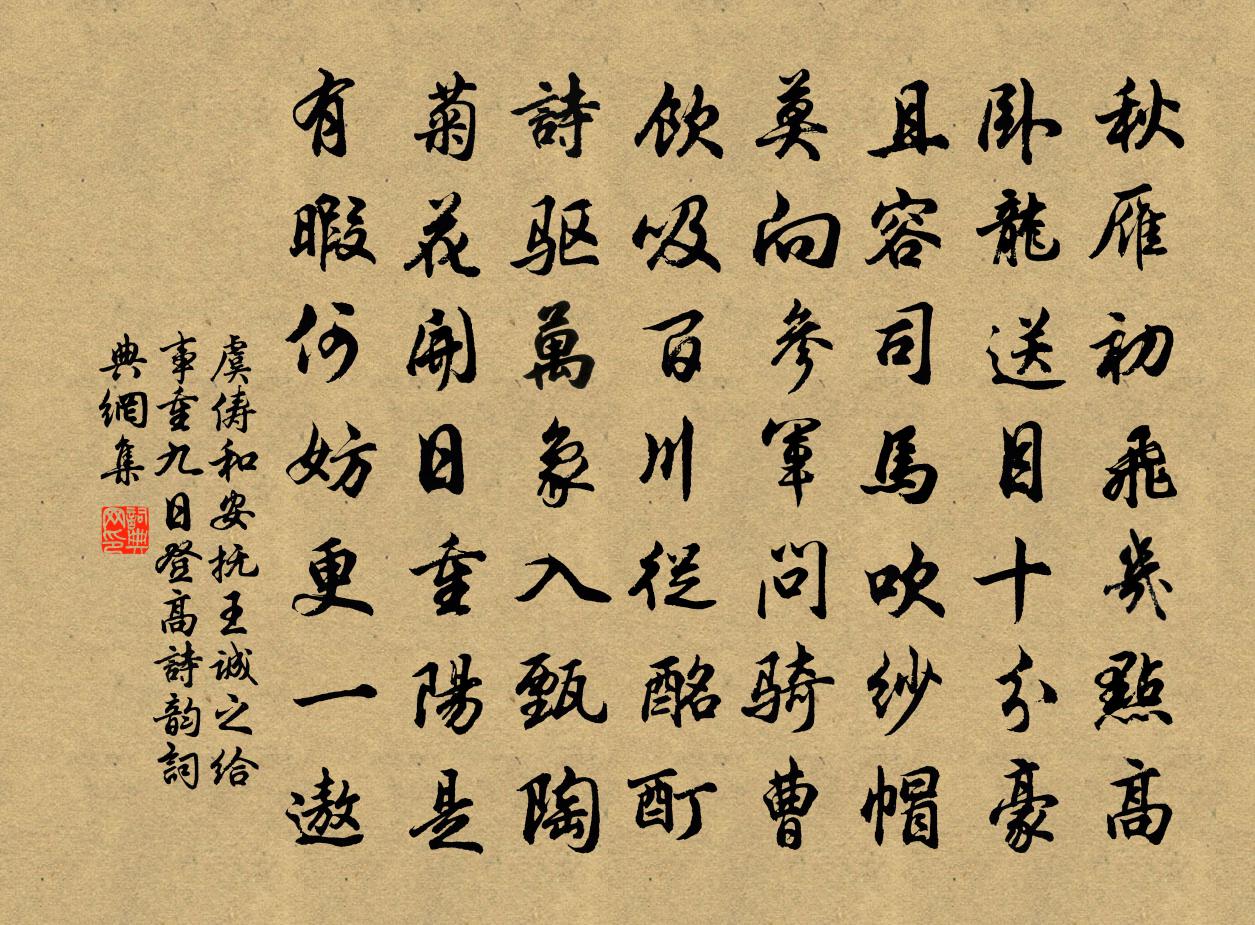 秋雁初飛幾點高
卧龍送目十分豪
且容司馬吹紗帽
莫向參軍問騎曹
飲吸百川從酩酊
詩驱萬象入甄陶
菊花開日重陽是
有暇何妨更一遨
虞俦和安抚王诚之给
事重九日登高詩韵詞
典網集
詞典网印